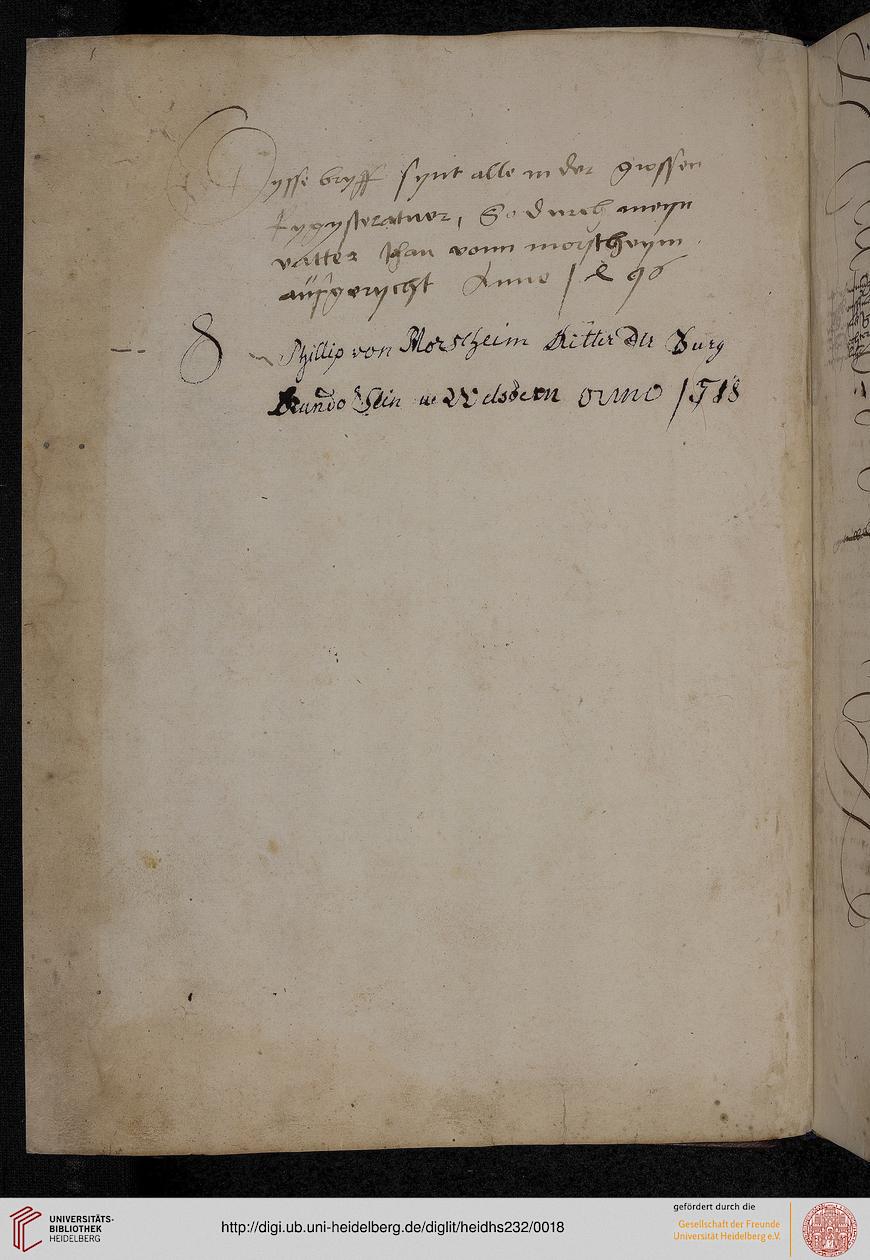 Dysse bryff synt alle in der grossen
Rygysteratuer, So durch meyn
vatter Jhan vonn morstheym
auffgerycht Anno 1496
Phillip von Morstheim Ritter der Burg
anno 1518
UNIVERSITÄTS-
BIBLIOTHEK
HEIDELBERG
http://digi.ub.uni-heidelberg.de/diglit/heidhs232/0018
gefördert durch die
Gesellschaft der Freunde
Universität Heidelberg e.V.